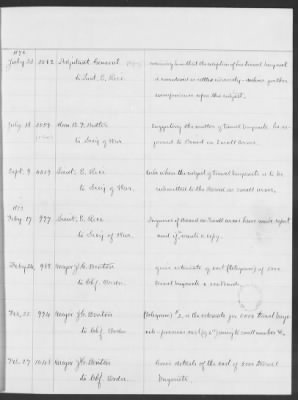 1872
July 22 2042 Adjutant General
to Lieut. E. Rice
informing him that the adoption of his trowel bayonet
is considered as settled adversely - declines further
correspondence upon this subject.
July 18 2059 Hon. B. F. Butler
to Sec'y of War
Suggesting the matter of trowel bayonets be re-
ferred to Board on Small Arms.
Sept. 9 Lieut. E. Rice
to Sec'y of War.
when the subject of trowel bayonets is to be
submitted to the Board on Small Arms.
1873
Feby. 17 777 Lieut. E. Rice
to Sec'y of War.
Inquires if Board on Small Arms have made report
and if wants a copy.
Feby 24 Major J. G. Benton
to Chf. Ordn.
gives estimate of cost (telegram) of 1000
trowel bayonets
Feb. 25 994 Major J. G. Benton
to Chf. Ordn
(telegram) is the estimate for 1000 trowel bayo-
nets - previous cost
Feb. 27 1043 Major J. G. Benton
to Chf. Ordn
Gives details of the cost of 1000 Trowel
Bayonets.